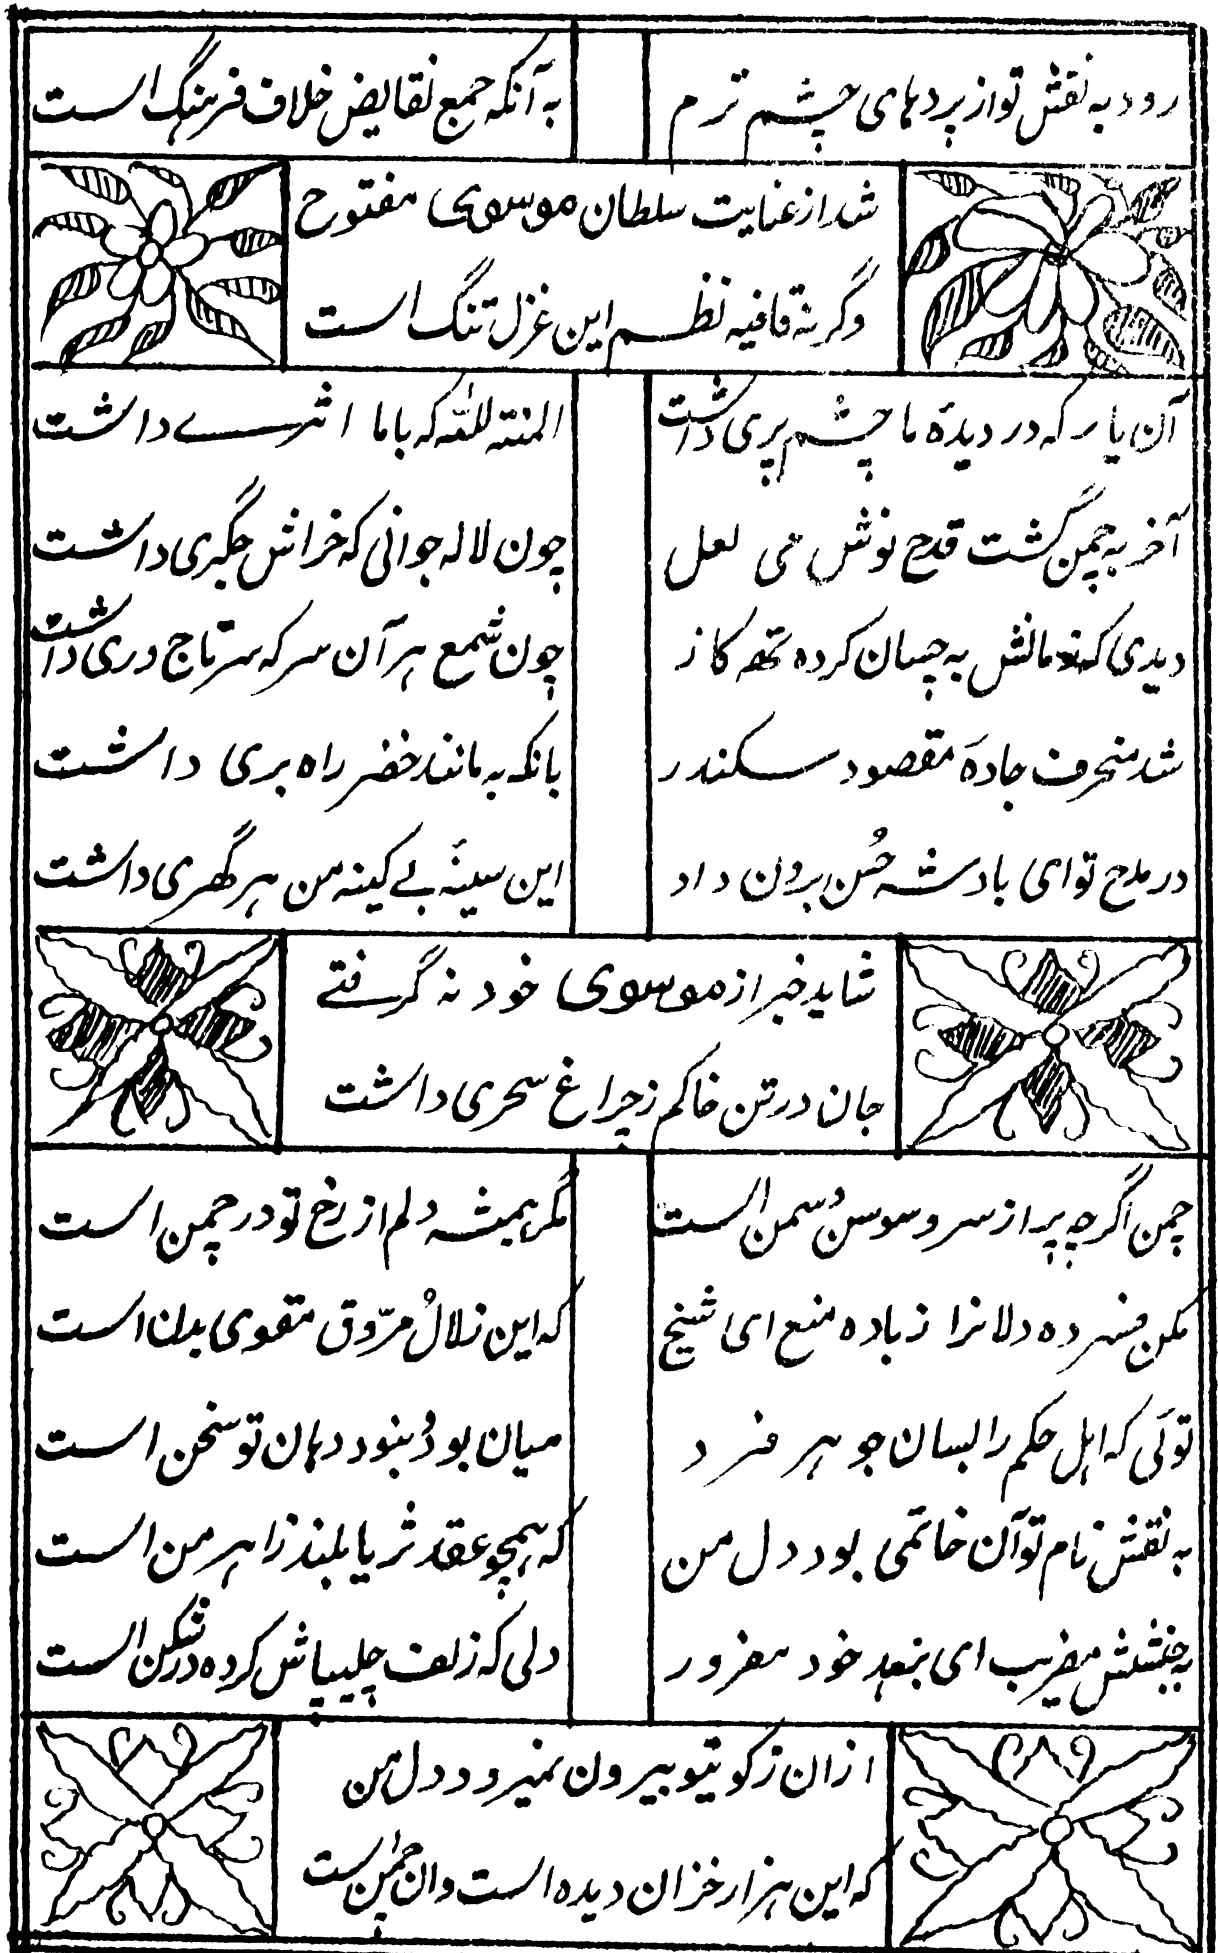 رود به نقش تو از پردهای چشم ترم
به آنکه جمع نقایض خلاف فرهنگ است
شد از عنایت سلطان موسوی مفتوح
وگرنه قافیه نظم این غزل تنگ است
آن یار که در دیدهٔ ما چشم پری داشت
المنته لله که با ما اثرے داشت
آخر به چمن گشت قدح نوش می لعل
چون لاله جوانی که خراش جگری داشت
دیدی که به چسان کرده تهه کاز
چون شمع هر آن سر که سر تاج دری داشت
شد منحرف جادهٔ مقصود سکندر
بانکه به مانند خضر راه بری داشت
در مدح تو ای بادشه حُسن برون داد
این سینهٔ بے کینه من هر گهری داشت
شاید خبر از موسوی خود نه گرفتے
جان در تن خاکم ز چراغ سحری داشت
چمن اگرچه پر از سرو سوسنُ سمن است
مگر همیشه دلم از رخ تو در چمن است
مکن فسرده دلانرا ز باده منع ای شیخ
که این زلالُ مروّق مقوی بدن است
توئی که اهل حکم را بسان جوهر فرد
میان بودُ نبود دهان تو سخن است
به نقش نام تو آن خاتمی بود دل من
که همچو عقد ثریا بلند ز اهرمن است
به جنبشش مفریب ای بعهد خود مغرور
دلی که زلف چلیپاش کرده در شکن است
ازان ز کویتو بیرون نمیرود دل من
که این هزار خزان دیده است وان چمن است